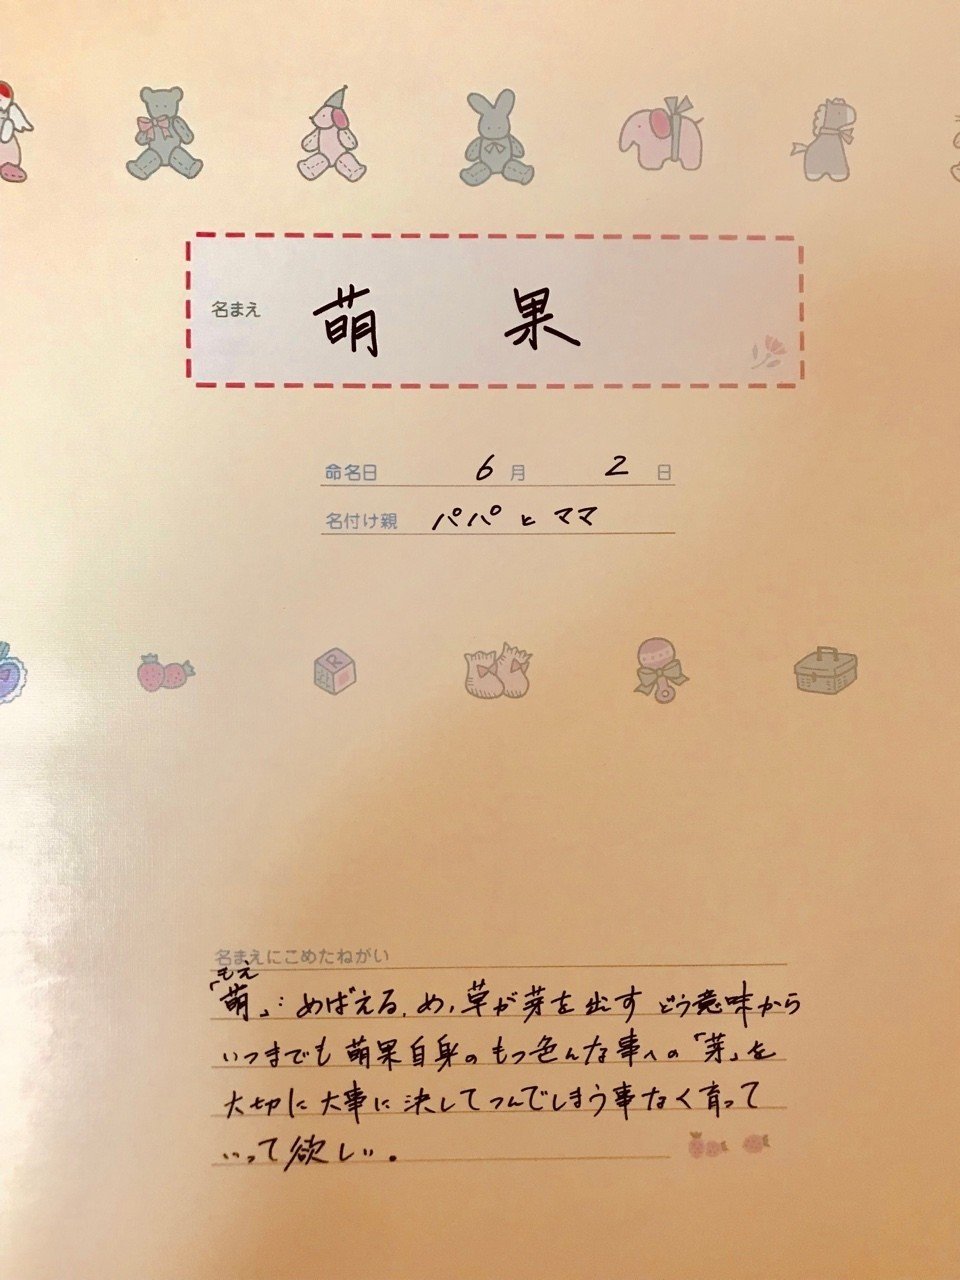 名まえ 萌 果
命名日 6 月 2 日
名付け親 パパ と ママ
R
名まえにこめたねがい
もえ
「萌」:めばえる、め,草が芽を出す どう意味から
いつまでも 萌果自身の もつ色んな事への「芽」を
大切に 大事に 決してつんでしまう事なく育って
いって欲しい。